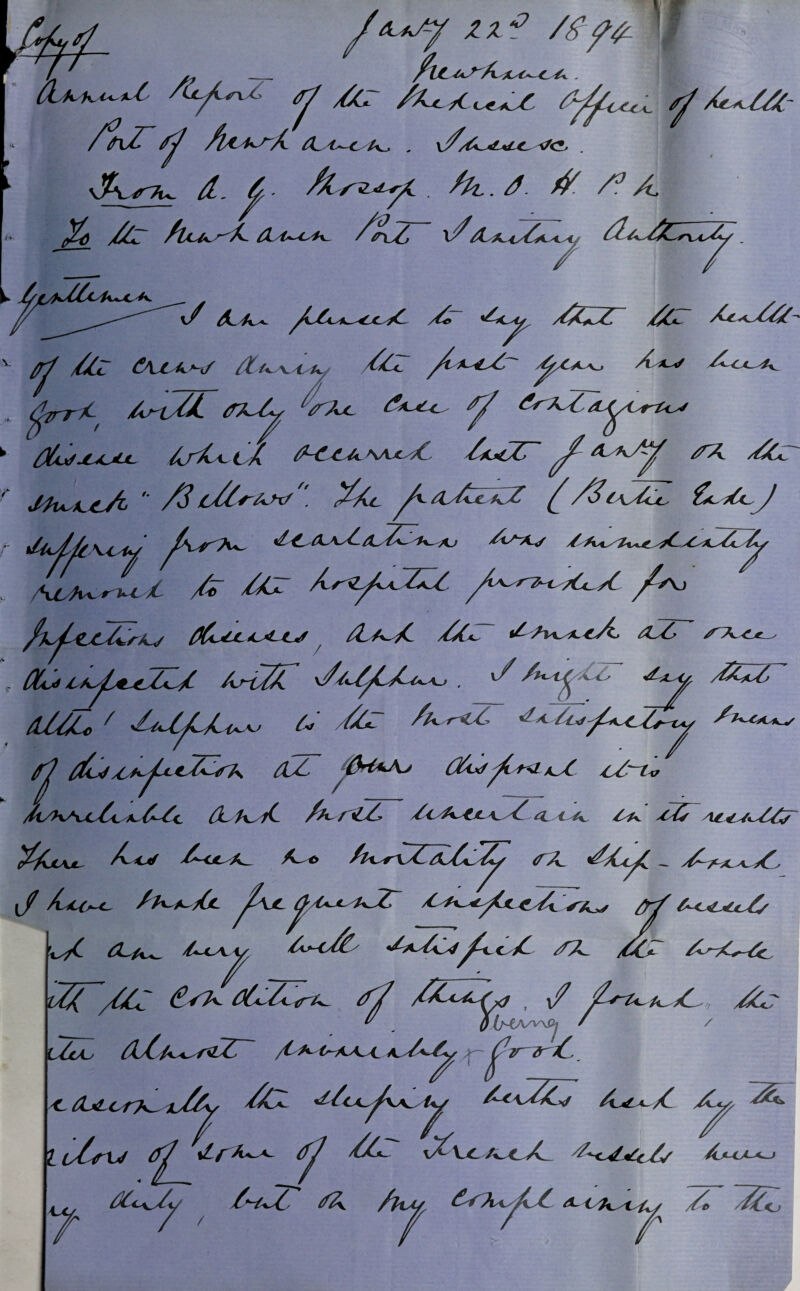 Copy of
Jany 22nd 1894
Newhaven.
Annual Report of the Medical Officer of health
Port of Newhaven. Sussex.
From A. G. Mossop. M. O. H. P. N
To the Newhaven Port Sanitary Authority.
Gentlemen
I am pleased to say that the health
of the crews during the past year has been
good, with only one case of contagious
disease which occurred last Jany on the
smack "Bellows". The patient (Bertie Eade)
suffering from scarlatina was immediately
removed to the hospital provided for
Infectious diseases, and the smack at once
disinfected with Sulphur. I might say that
altho' Sulphur is the most satisfactory means
of disinfection at our disposal it is
unreliable and most uncertain in its results
There has been no mortality on Ship-board.
I have made frequent inspections of vessels
nd am very well satisfied on the whole
ith the condition of things I found, the
ter almost invariably x being good.
casionally the sleeping berths used by the
ailors of some of the French vessels were
ry dirty, but on my complaining to the